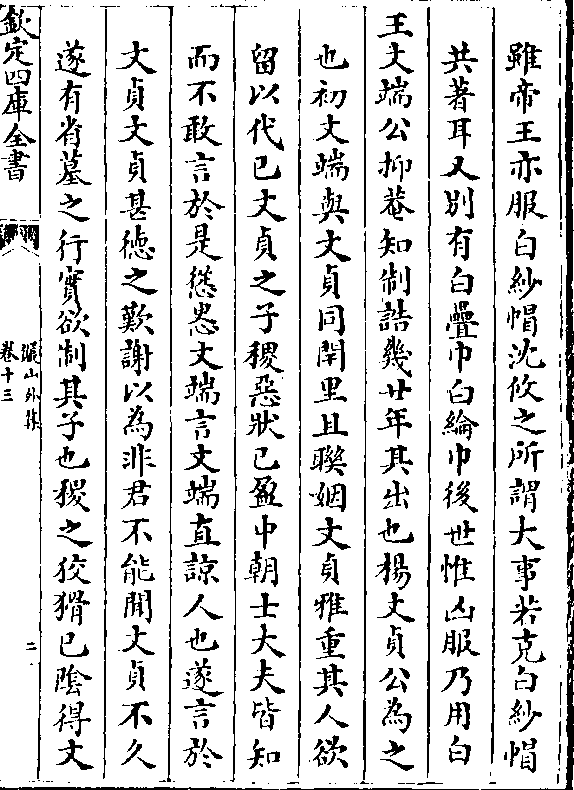 雖帝王亦服白紗㡌沈攸之所謂大事若克白紗㡌
共著耳又別有白疊巾白綸巾後世惟凶服乃用白
王文端公抑菴知制誥幾廿年其出也楊文貞公為之
也初文端與文貞同閈里且聯姻文貞雅重其人欲
留以代已文貞之子稷惡狀已盈中朝士大夫皆知
而不敢言於是慫恿文端言文端直諒人也遂言於
文貞文貞甚徳之歎謝以為非君不能聞文貞不久
遂有省墓之行實欲制其子也稷之狡猾已隂得文
欽定四庫全書
儼山外集
卷十三
二